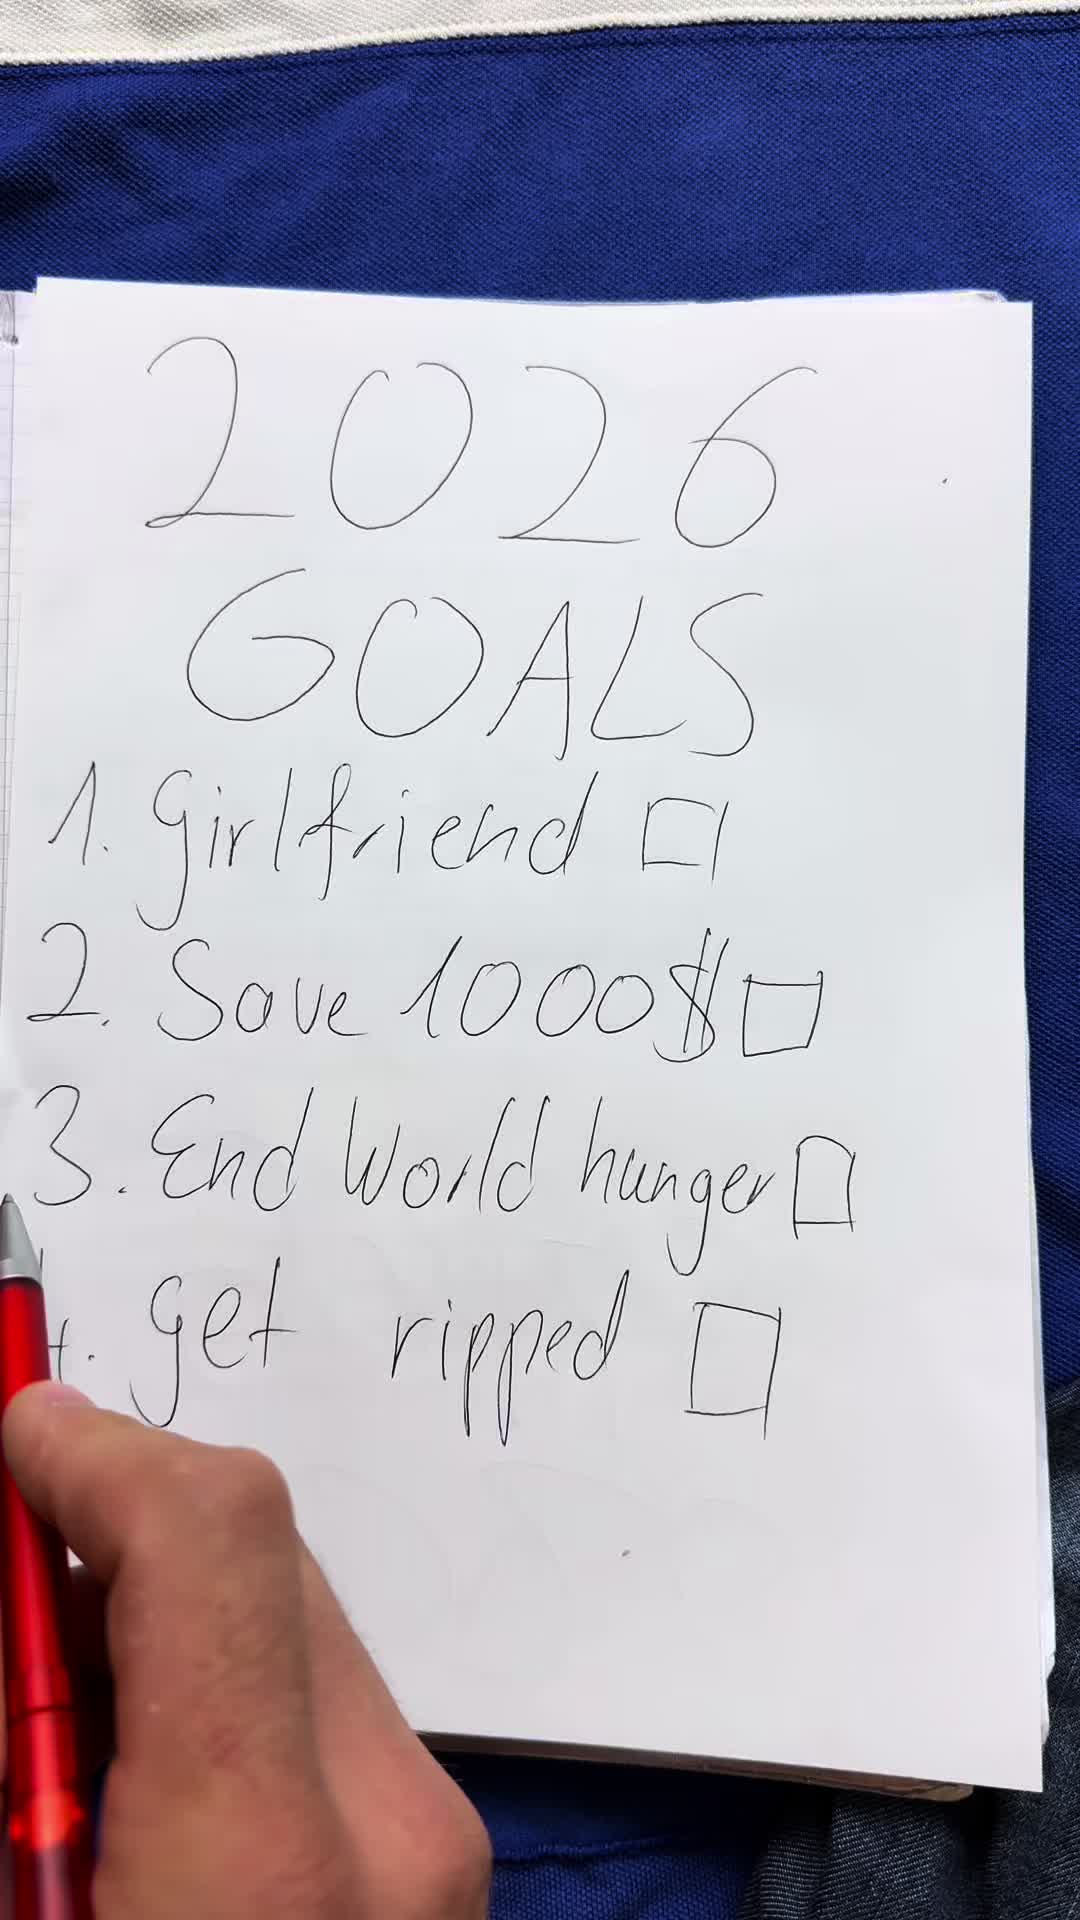 2026
GOALS
1. Girlfriend
2. Save 1000$
3. End World hunger
4. get ripped